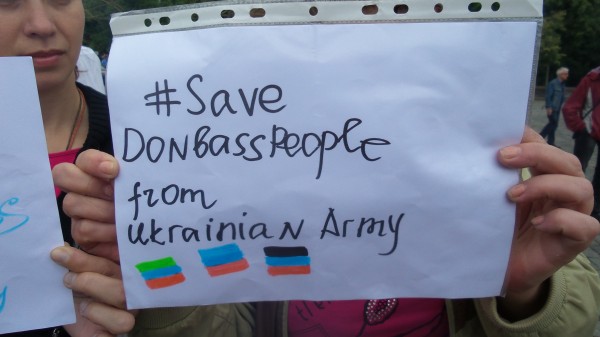 #Save
DonbassPeople
from
UkrainiaN Army